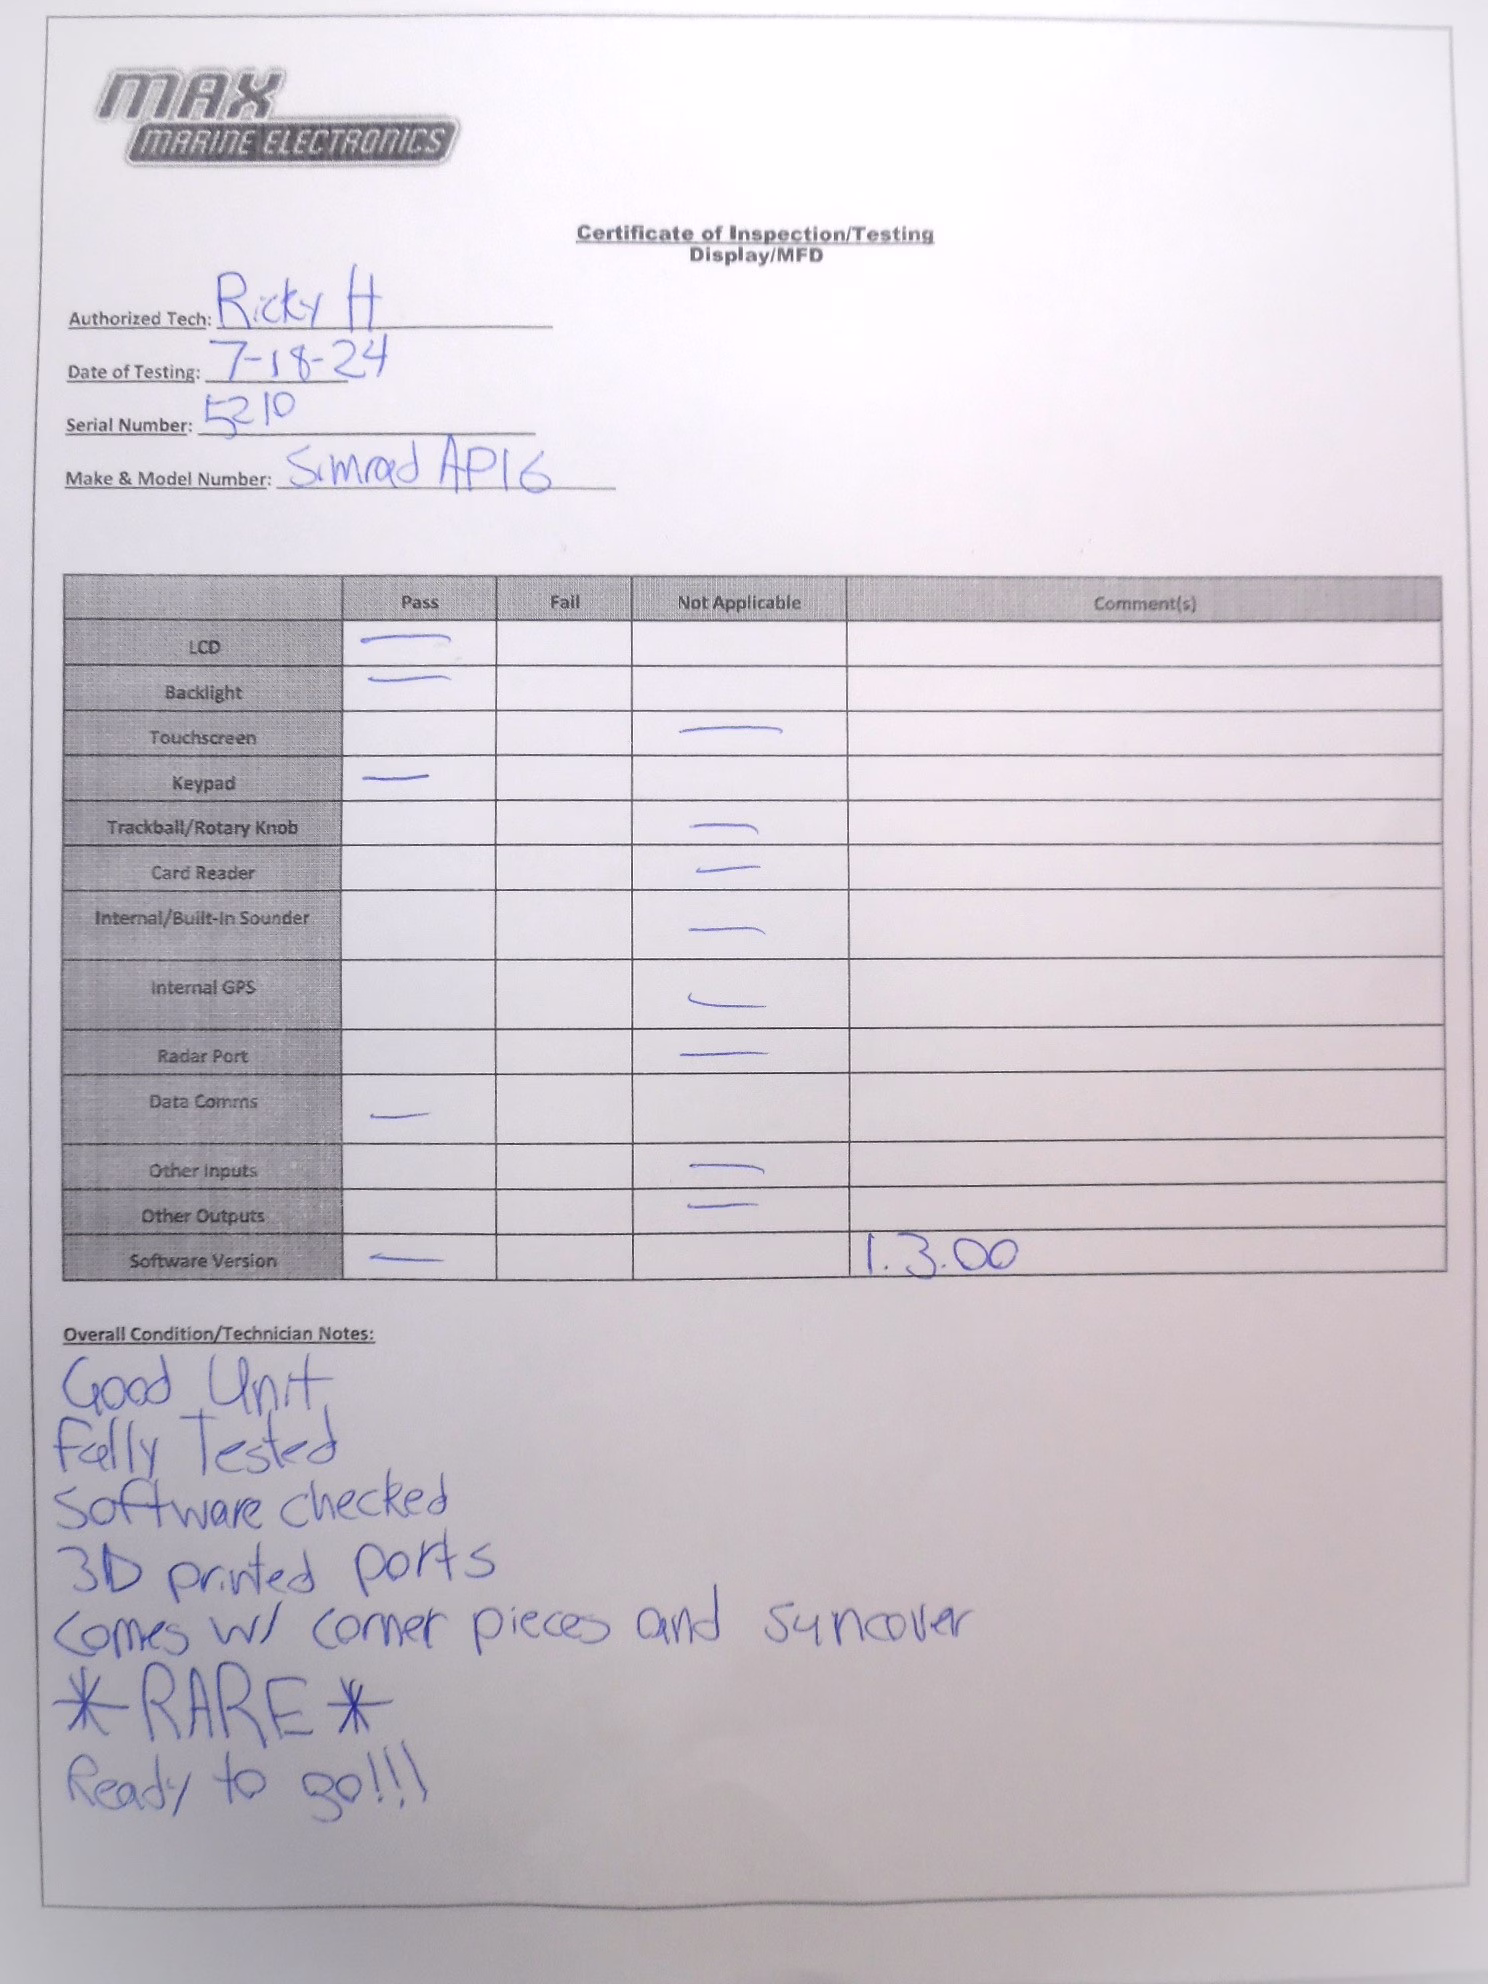 MAX
MARINE ELECTRONICS
Certificate of Inspection/Testing
Display/MFD
Authorized Tech: Ricky H
Date of Testing: 7-18-24
Serial Number: 5210
Make & Model Number: Simrad AP16
Pass Fail Not Applicable Comment(s)
LCD —
Backlight —
Touchscreen —
Keypad —
Trackball/Rotary Knob —
Card Reader —
Internal/Built-In Sounder —
Internal GPS —
Radar Port —
Data Comms —
Other Inputs —
Other Outputs —
Software Version — 1.3.00
Overall Condition/Technician Notes:
Good Unit
Fully Tested
Software checked
3D printed ports
Comes w/ corner pieces and suncover
*RARE*
Ready to go!!!